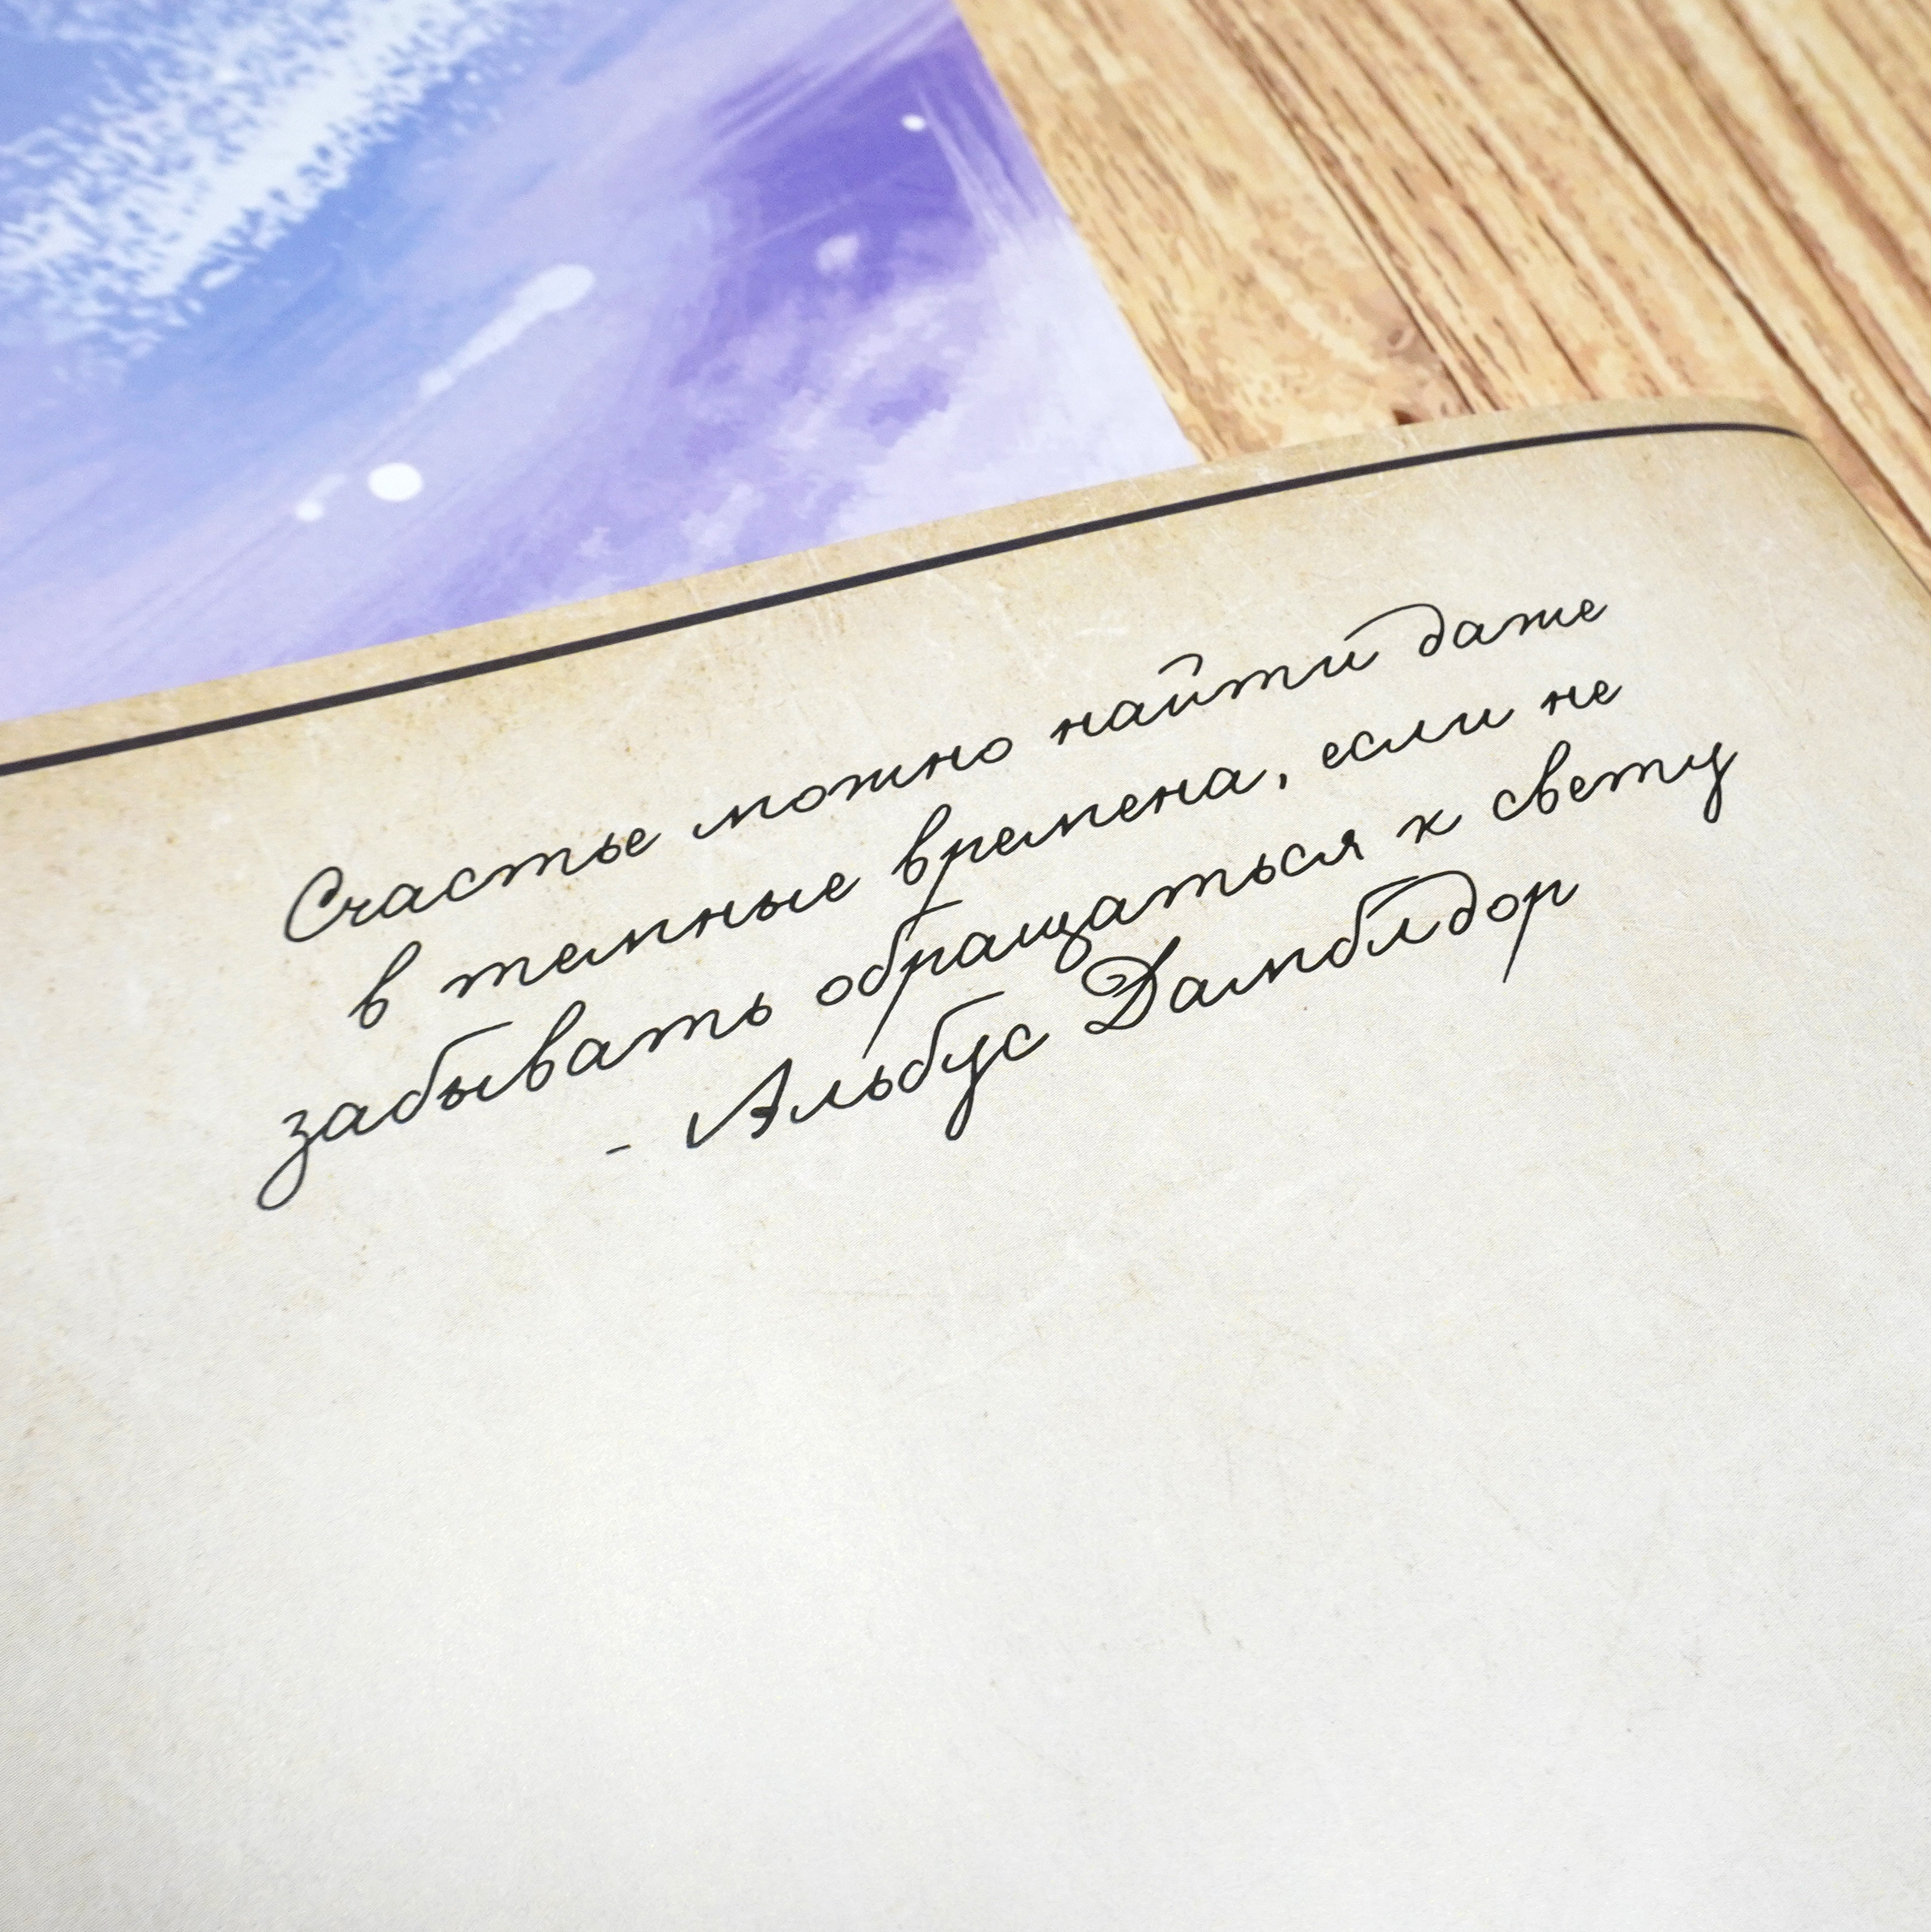 Счастье можно найти даже
в темные времена, если не
забывать обращаться к свету
- Альбус Дамблдор